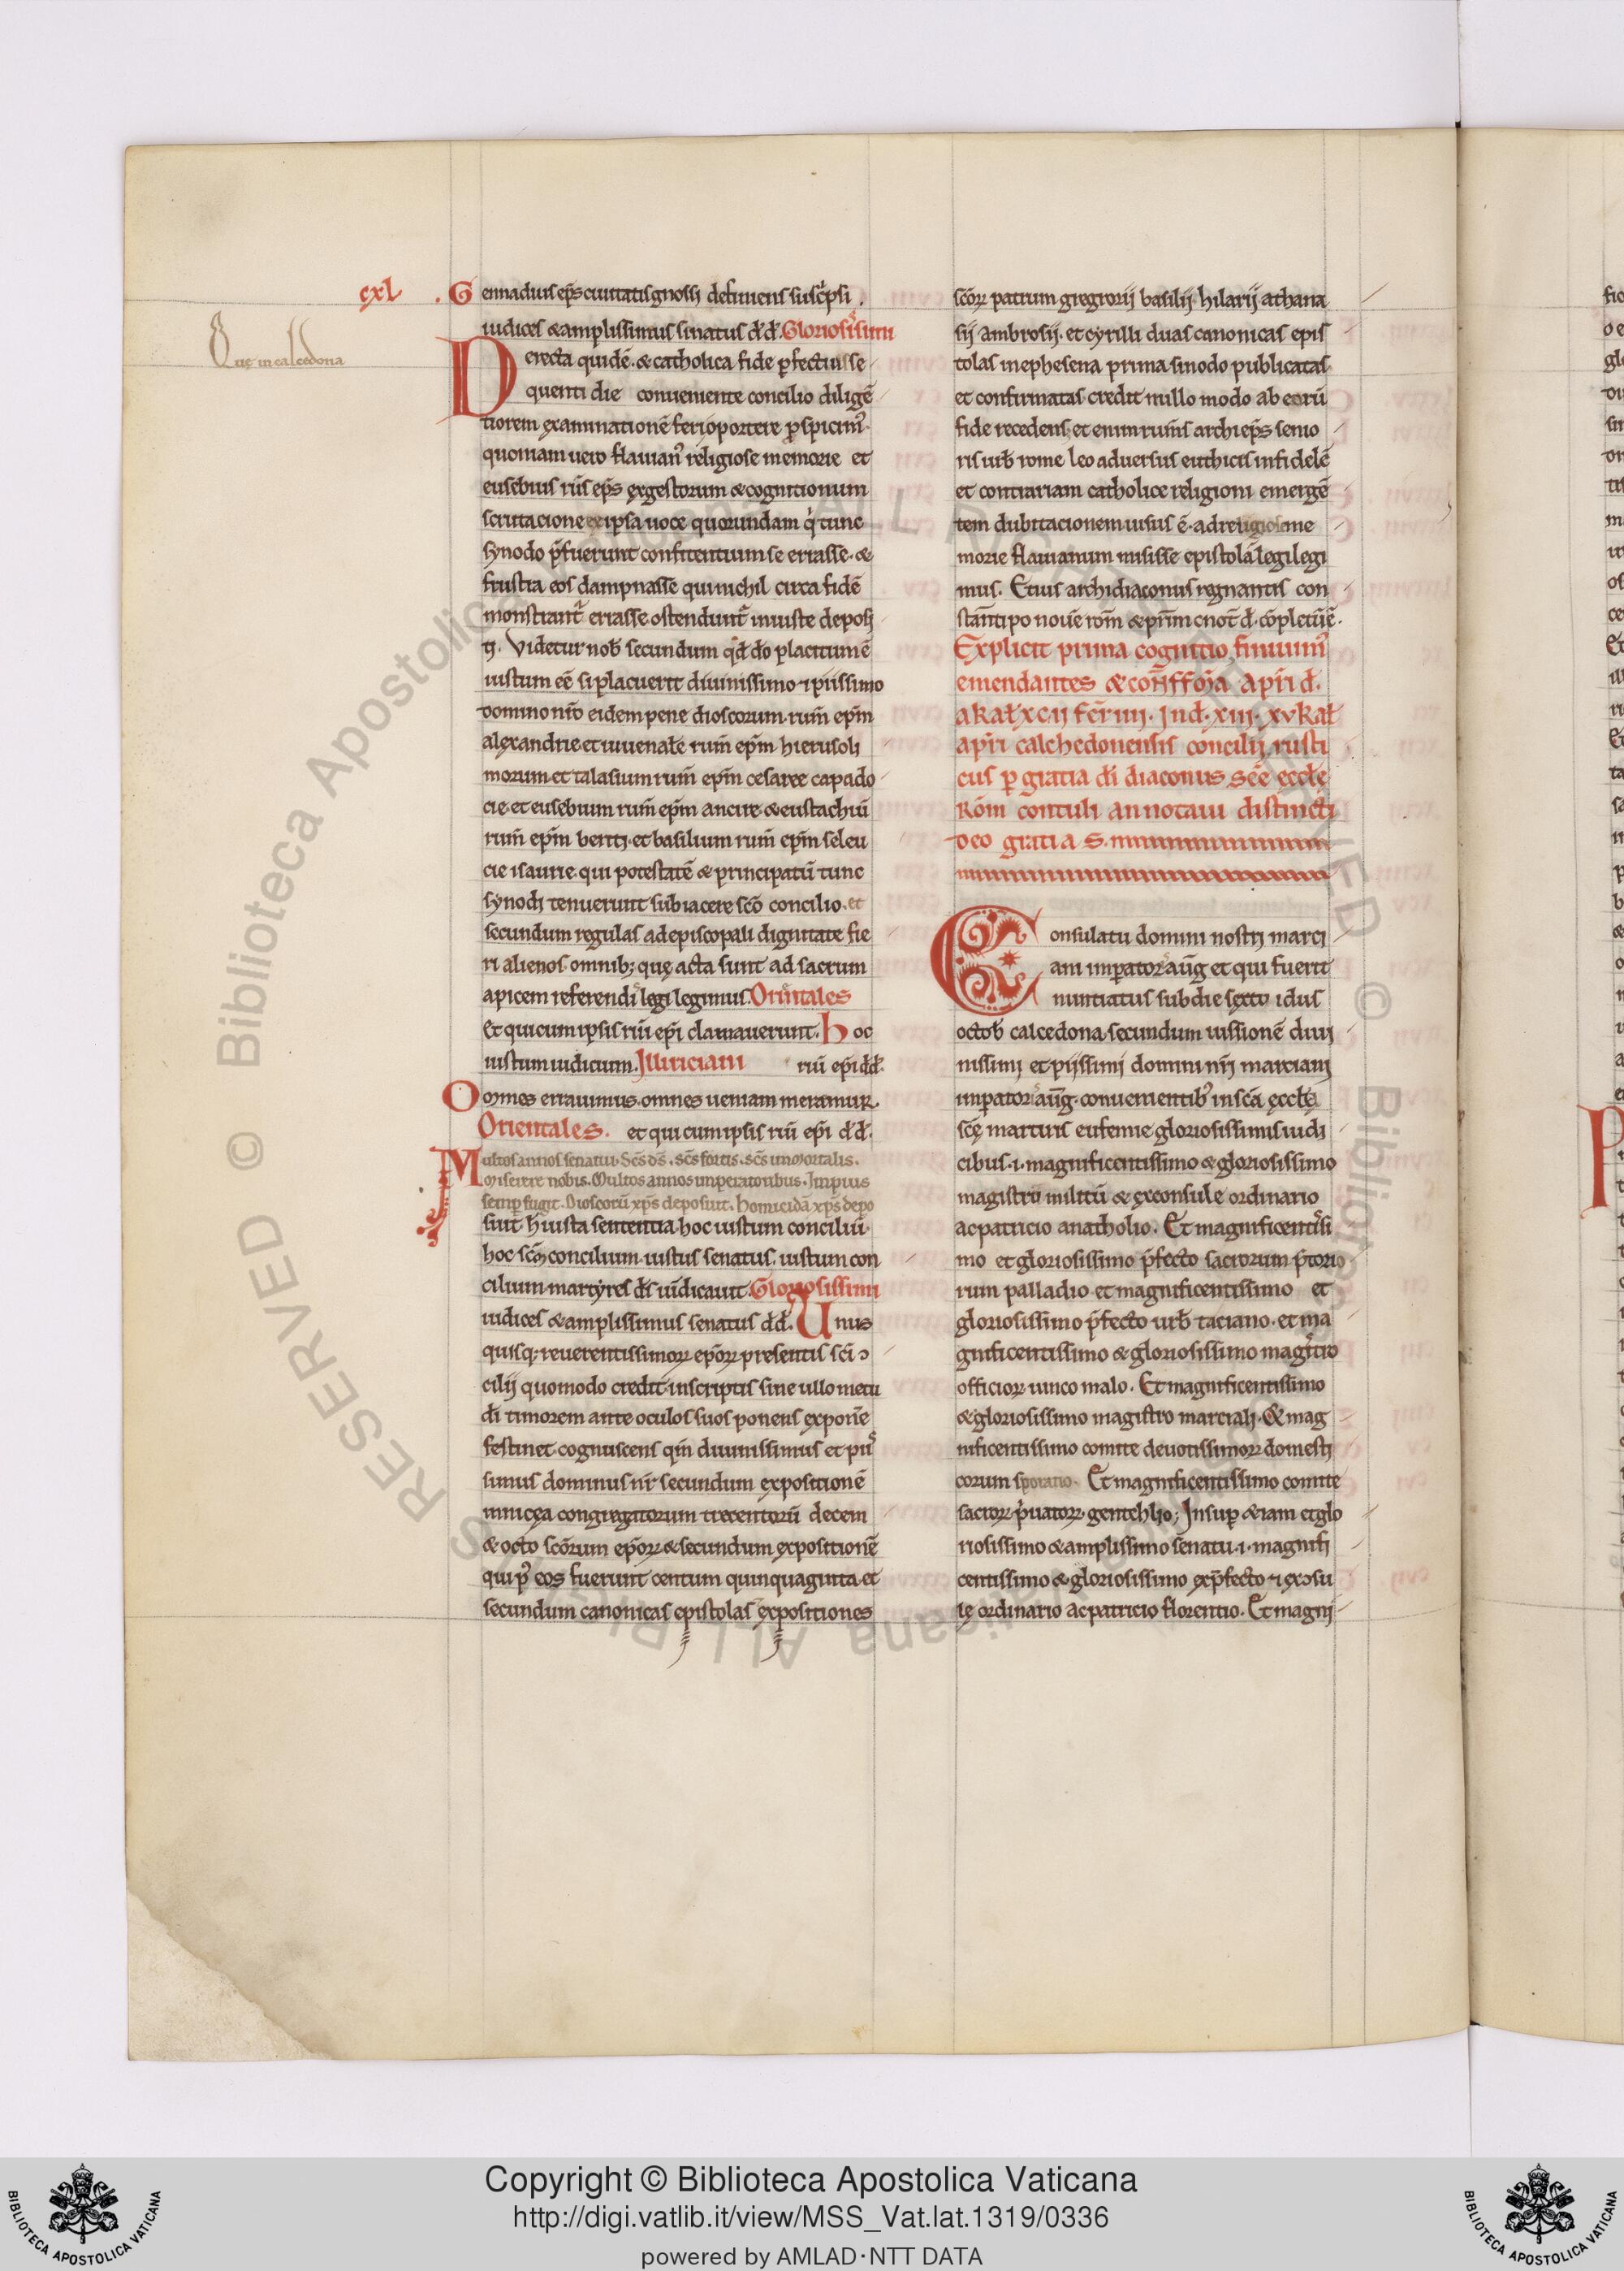 cxl
Que in calcedona
Gennadius ep̄s ciuitatis gnossi definiens suscrͥpsi.
iudices & amplissimus sinatus d̄d̄. Gloriosissimi
Derecta quidē & catholica fide ꝑfectius se
quenti die conueniente concilio diligē
tiorem examinationē feri oportere ꝑspicimꝰ.
quoniam uero flauianꝰ religiose memorie et
eusebius rūs ep̄s ex gestorum & cognitionum
scrutacione ex ipsa uoce quorundam qͥ tunc
synodo p̄fuerunt confitentium se errasse. &
frustra eos dampnasse qui nichil circa fidē
monstrant᷑ errasse ostendunt᷑ iniuste deposi
ti. Videtur nob̄ secundum qd̄ d̄o placitum ē
iustum eē si placuerit diuinissimo & piissimo
domino nr̄o eidem pene dioscorum rūm ep̄m
alexandrie et iuuenale rūm ep̄m hierusoli
morum et talasium rūm ep̄m cesaree capado
cie et eusebium rūm ep̄m ancire & eustachiū
rūm ep̄m beriti. et basilium rūm ep̄m seleu
cie isaurie. qui potestatē & principatū tunc
synodi tenuerunt subiacere sc̄o concilio. et
secundum regulas ad episcopali dignitate fie
ri alienos omnib; quę acta sunt ad sacrum
apicem referendis legi legimus. Orientales
Et qui cum ipsis rūi ep̄i clamauerunt. Hoc
iustum iudicium. Illiriciani rūi ep̄i d̄d̄.
Omnes errauimus. omnes ueniam meramur.
Orientales. et qui cum ipsis rūi ep̄i d̄d̄.
Multos annos senatui. Sc̄s d̄s. sc̄s fortis. sc̄s inmortalis.
Miserere nobis. Multos annos imperatoribus. Impius
semꝑ fugit. Dioscorū xp̄s deposuit. homicidā xp̄s depo
suit. h̄ iusta sententia hoc iustum conciliū.
hoc sc̄m concilium. iustus senatus. iustum con
cilium. martyres d̄s uindicauit. Gloriosissimi
iudices & amplissimus senatus d̄d̄. Unus
quisq; reuerentissimoꝝ ep̄oꝝ presentis sc̄i ɔ
cilij quomodo credit inscriptis sine ullo metu
d̄i timorem ante oculos suos ponens exponē
festinet cognuscens qm̄ diuinissimus et piis
simus dominus nr̄ secundum expositionē
in nicęa congregatorum trecentorū decem
& octo sc̄orum ep̄oꝝ & secundum expositionē
qui pꝰ eos fuerunt centum quinquaginta et
secundum canonicas epistolas expositiones
sc̄oꝝ patrum gregorij basilij hilarij athana
sij ambrosij. et cyrilli duas canonicas epis
tolas in ephesena prima sinodo publicatas
et confirmatas credit nullo modo ab eorū
fide recedens. et enim rūmˢ archiep̄s senio
ris urb̄ rome leo aduersus euthicis infidelē
et contrariam catholice religioni emergē
tem dubitacionem uisus ē. ad religiosi me
morie flauianum misisse epistolā legi legi
mus. Et uis archidiaconus regnantis con
stāntipo nouē rōm & prīm cnōt d̄. cōpletū ē.
Explicit prima cognitio finiuimꝰ
emendantes
a kal xcij fer̄ iiij. Ind. xiii. xv kal
apri calchedonensis concilij, rusti
cus ꝑ gratia d̄i diaconus sc̄ę eccłe
Rōm contuli annotaui distincti
deo gratia S.
Consulatu domini nostri marci
ani imꝑatoris aūg et qui fuerit
nuntiatus sub die sexto idus
octob̄ calcedona, secundum iussionē diui
nissimi et pijssimi domini nr̄i marciani
imꝑatoris aūg. conuenientibꝰ in sc̄a eccłe
sc̄ę martiris eufemie gloriosissimis iudi
cibus .i. magnificentissimo & gloriosissimo
magistro militū & exconsule ordinario
ac patricio anatholio. Et magnificentissi
mo et gloriosissimo p̄fecto sacrorum p̄torio
rum palladio et magnificentissimo et
gloriosissimo p̄fecto urb̄ taciano. et ma
gnificentissimo & gloriosissimo magistro
officioꝝ uinco malo. Et magnificentissimo
& gloriosissimo magistro marciali. & mag
nificentissimo comite deuotissimoꝝ domesti
corum sporatio. Et magnificentissimo comite
sacroꝝ pͥuatoꝝ. genethlio; Insuꝑ & iam et glo
riosissimo & amplissimo senatu .i. magnifi
centissimo & gloriosissimo exp̄fecto & exɔsu
lę ordinario ac patricio florentio. Et magni
Copyright © Biblioteca Apostolica Vaticana
http://digi.vatlib.it/view/MSS_Vat.lat.1319/0336
powered by AMLAD·NTT DATA
BIBLIOTECA APOSTOLICA VATICANA
BIBLIOTECA APOSTOLICA VATICANA